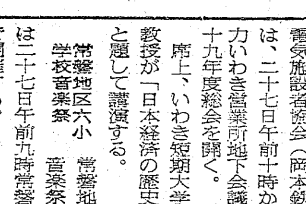 電気施設者協会（岡本録
は、二十七日午前十時か
力いわき営業所地下会議
十九年度総会を開く。
席上、いわき短期大学
教授が「日本経済の歴史
と題して講演する。
常磐地区六小
学校音楽祭
常磐地
音楽祭
は二十七日午前九時常磐